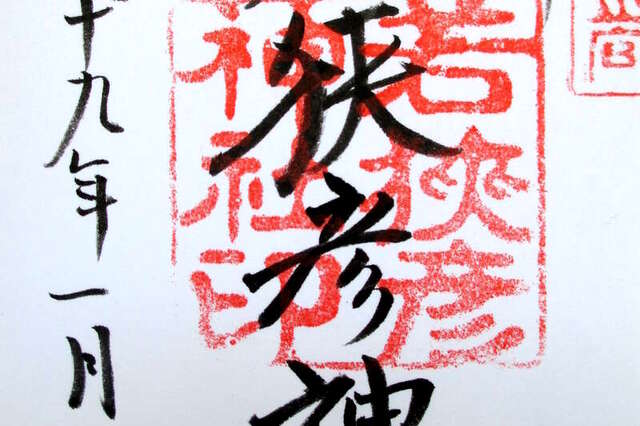 若狹彦
神社印
狭彦神
十九年一月